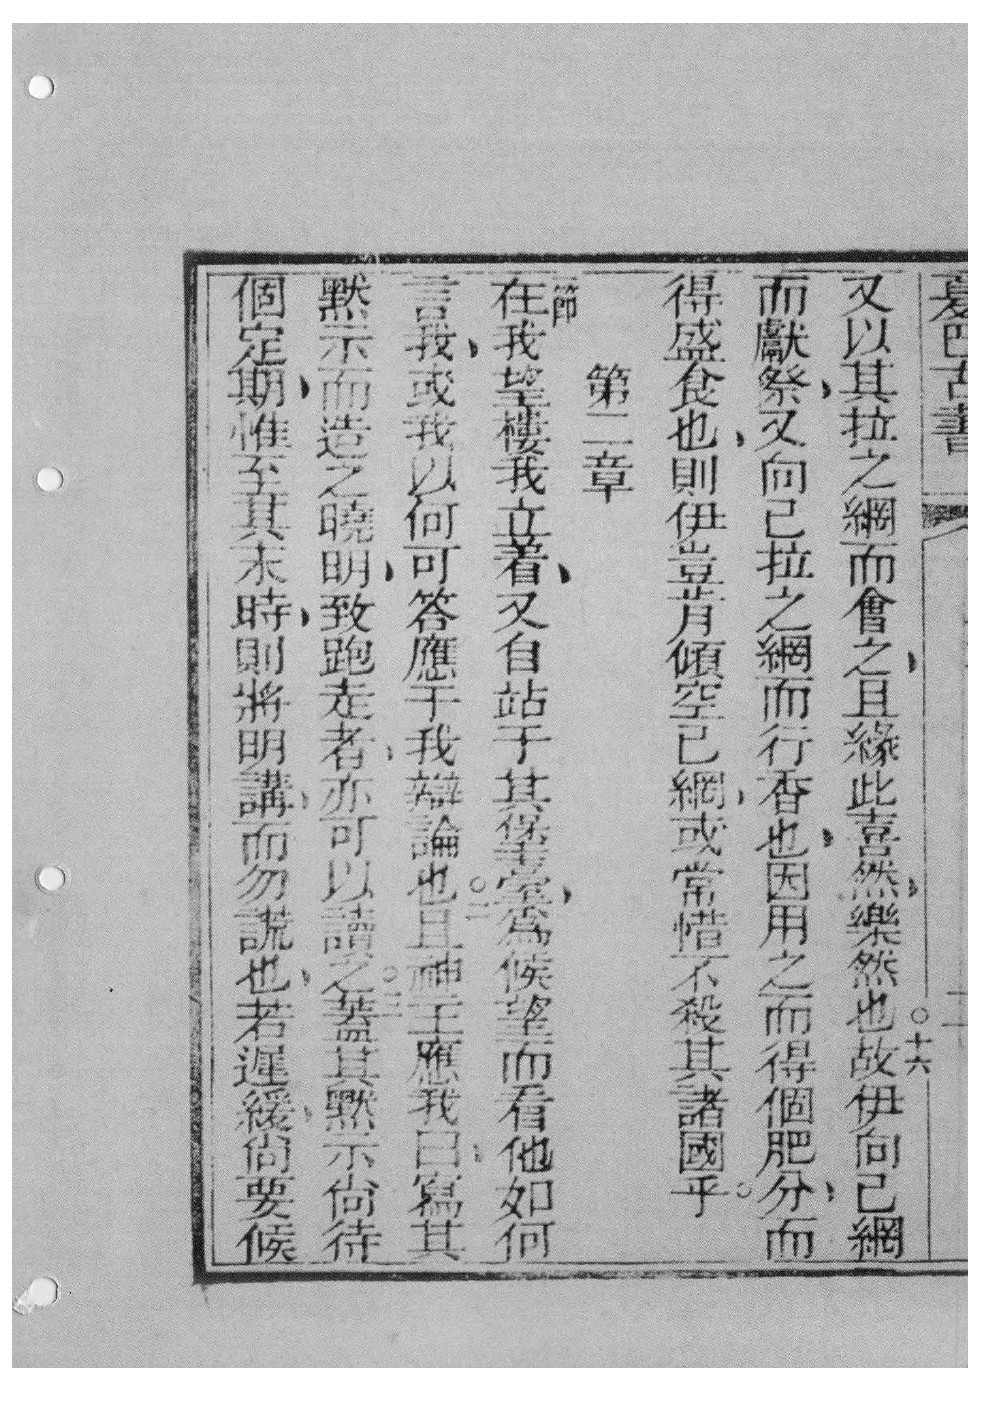 夏巴古書 二
又以其拉之網而會之、且緣此喜然、樂然也。十六故伊向己網
而獻祭、又向己拉之網而行香也、因用之而得個肥分、而
得盛食也、則伊豈肯傾空己網、或常惜不殺其諸國乎。
第二章
節在我望樓我立着、又自站于其堡臺、爲候望而看他如何
言我、或我以何可答應于我辯論也。二且神主應我曰、寫其
默示而造之曉明、致跑走者、亦可以讀之。三蓋其默示尙待
個定期、惟至其末時、則將明講、而勿謊也、若遲緩、尙要候